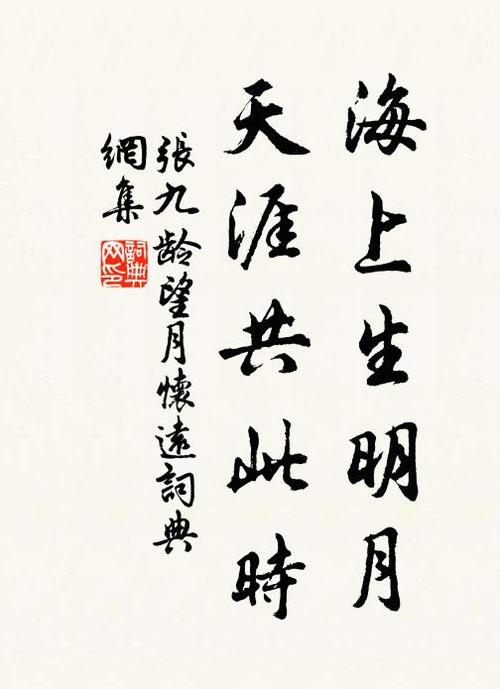 海上生明月
天涯共此時
張九齡望月懷遠詞典
網集
詞典
网印